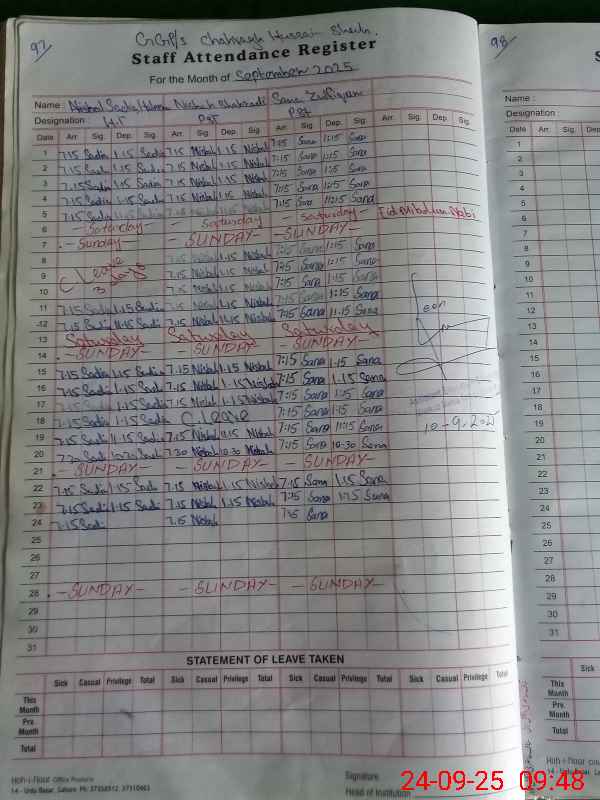 97
GGP/s Chah Hussain
Staff Attendance Register
98
For the Month of September 2025
Name : Nishat Shahzadi Sana Zulfiqar
Name :
Designation H.T PST PST
Designation
Date Arr. Sig. Dep. Sig. Arr. Sig. Dep. Sig. Arr. Sig. Dep. Sig. Arr. Sig. Dep. Sig.
Date Arr. Sig. Dep
1 7.15 Sadia 1.15 Sadia 7.15 Nishat 1.15 Nishat 7:15 Sana 1:15 Sana
2 7.15 Sadia 1.15 Sadia 7.15 Nishat 1.15 Nishat 7:15 Sana 1:15 Sana
3 7.15 Sadia 1.15 Sadia 7.15 Nishat 1.15 Nishat 7:15 Sana 1:15 Sana
4 7.15 Sadia 1.15 Sadia 7.15 Nishat 1.15 Nishat 7:15 Sana 1:15 Sana
5 7.15 Sadia 7:15 Sana 11:15 Sana
6 - Saturday - - Saturday - - Saturday - Eid Milad un Nabi
7 - Sunday - - SUNDAY - - SUNDAY -
8 7.15 Nishat 1.15 Nishat 7:15 Sana 1:15 Sana
9 C Leave 3 days 7.15 Nishat 1.15 Nishat 7:15 Sana 1:15 Sana
10 7.15 Nishat 1.15 Nishat 7:15 Sana 1:15 Sana
11 7.15 Sadia 1.15 Sadia 7.15 Nishat 1.15 Nishat 7:15 Sana 1:15 Sana
12 7.15 Sadia 11.15 Sadia 7.15 Nishat 11.15 Nishat 7:15 Sana 11.15 Sana
13 Saturday Saturday Saturday
14 - SUNDAY - - SUNDAY - - SUNDAY -
15 7.15 Sadia 1.15 Sadia 7.15 Nishat 1.15 Nishat 7:15 Sana 1.15 Sana
16 7.15 Sadia 1.15 Sadia 7.15 Nishat 1.15 Nishat 7:15 Sana 1.15 Sana
17 7.15 Sadia 1.15 Sadia 7.15 Nishat 1.15 Nishat 7:15 Sana 1:15 Sana
18 7.15 Sadia 1.15 Sadia C Leave 7:15 Sana 1:15 Sana
19 7.15 Sadia 11.15 Sadia 7.15 Nishat 11.15 Nishat 7:15 Sana 11:15 Sana
20 7.30 Sadia 10.30 Sadia 7.30 Nishat 10.30 Nishat 7:15 Sana 10-30 Sana
10-9-2025
21 - SUNDAY - - SUNDAY - - SUNDAY -
22 7.15 Sadia 1.15 Sadia 7.15 Nishat 1.15 Nishat 7.15 Sana 1.15 Sana
23 7.15 Sadia 1.15 Sadia 7.15 Nishat 1.15 Nishat 7:15 Sana 1:15 Sana
24 7.15 Sadia 7.15 Nishat 7:15 Sana
25
26
27
28 - SUNDAY - - SUNDAY - - SUNDAY -
29
30
31
STATEMENT OF LEAVE TAKEN
Sick Casual Privilege Total Sick Casual Privilege Total Sick Casual Privilege Total Sick Casual Privilege Total
This Month
Pre. Month
Total
Sick
This Month
Pre. Month
Total
Hoh-i-Noor Office Products
14 - Urdu Bazar, Lahore. Ph: 37358512, 37310463
Signature
Head of Institution
24-09-25 09:48